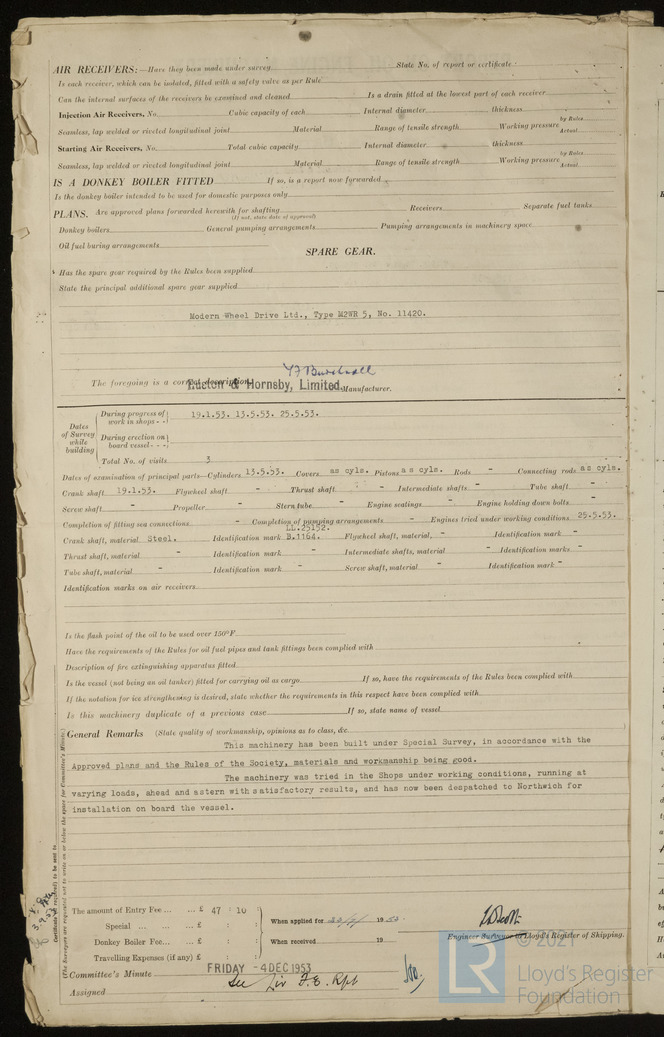 AIR RECEIVERS:—Have they been made under survey State No. of report or certificate
Is each receiver, which can be isolated, fitted with a safety valve as per Rule
Can the internal surfaces of the receivers be examined and cleaned Is a drain fitted at the lowest part of each receiver
Injection Air Receivers, No. Cubic capacity of each Internal diameter thickness
Seamless, lap welded or riveted longitudinal joint Material Range of tensile strength Working pressure by Rules Actual
Starting Air Receivers, No. Total cubic capacity Internal diameter thickness
Seamless, lap welded or riveted longitudinal joint Material Range of tensile strength Working pressure by Rules Actual
IS A DONKEY BOILER FITTED If so, is a report now forwarded
Is the donkey boiler intended to be used for domestic purposes only
PLANS. Are approved plans forwarded herewith for shafting Receivers Separate fuel tanks
(If not, state date of approval)
Donkey boilers General pumping arrangements Pumping arrangements in machinery space
Oil fuel buring arrangements
SPARE GEAR.
Has the spare gear required by the Rules been supplied
State the principal additional spare gear supplied
Modern Wheel Drive Ltd., Type M2WR 5, No. 11420.
The foregoing is a correct description
Ruston & Hornsby, Limited. Manufacturer.
Dates of Survey while building
During progress of work in shops - - 19.1.53. 13.5.53. 25.5.53.
During erection on board vessel - - -
Total No. of visits 3
Dates of examination of principal parts—Cylinders 13.5.53. Covers as cyls. Pistons as cyls. Rods - Connecting rods as cyls.
Crank shaft 19.1.53. Flywheel shaft - Thrust shaft - Intermediate shafts - Tube shaft -
Screw shaft - Propeller - Stern tube - Engine seatings - Engine holding down bolts -
Completion of fitting sea connections - Completion of pumping arrangements - Engines tried under working conditions 25.5.53.
LL.25152.
Crank shaft, material Steel. Identification mark B.1164. Flywheel shaft, material, - Identification mark -
Thrust shaft, material - Identification mark - Intermediate shafts, material - Identification marks -
Tube shaft, material - Identification mark - Screw shaft, material - Identification mark -
Identification marks on air receivers
Is the flash point of the oil to be used over 150°F
Have the requirements of the Rules for oil fuel pipes and tank fittings been complied with
Description of fire extinguishing apparatus fitted
Is the vessel (not being an oil tanker) fitted for carrying oil as cargo If so, have the requirements of the Rules been complied with
If the notation for ice strengthening is desired, state whether the requirements in this respect have been complied with
Is this machinery duplicate of a previous case If so, state name of vessel
General Remarks (State quality of workmanship, opinions as to class, &c.
This machinery has been built under Special Survey, in accordance with the
Approved plans and the Rules of the Society, materials and workmanship being good.
The machinery was tried in the Shops under working conditions, running at
varying loads, ahead and astern with satisfactory results, and has now been despatched to Northwich for
installation on board the vessel.
(The Surveyors are requested not to write on or below the space for Committee's Minute.)
Certificate (if required) to be sent to
The amount of Entry Fee ... ... £ 47 : 10 : When applied for 19 53
Special ... ... ... £ : :
Donkey Boiler Fee... ... £ : : When received 19
Travelling Expenses (if any) £ : :
Engineer Surveyor to Lloyd's Register of Shipping.
Committee's Minute FRIDAY - 4 DEC 1953
Assigned See Liv F.E. Rpt
© 2021
LR
Lloyd's Register
Foundation